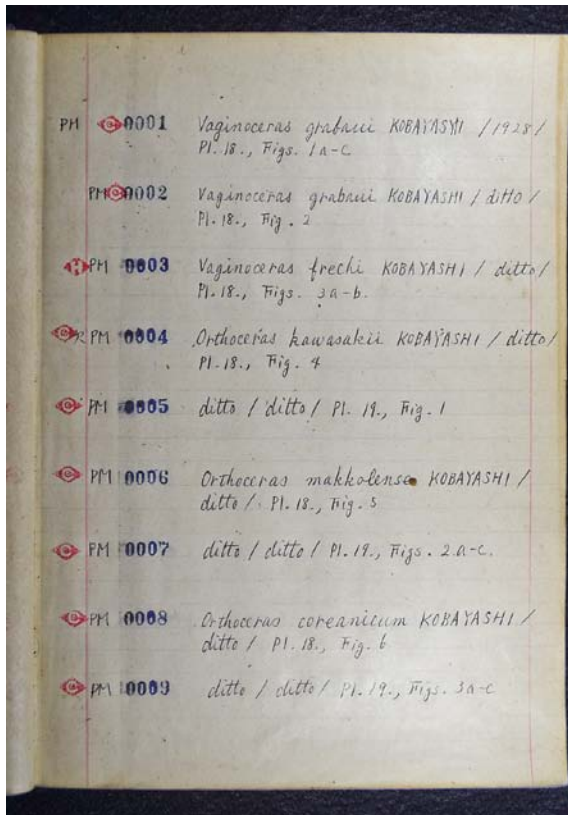 PM 0001 Vaginoceras grabaui KOBAYASHI / 1928 /
Pl. 18., Figs. 1a-c
PM 0002 Vaginoceras grabaui KOBAYASHI / ditto /
Pl. 18., Fig. 2
PM 0003 Vaginoceras frechi KOBAYASHI / ditto /
Pl. 18., Figs. 3a-b.
PM 0004 Orthoceras kawasakii KOBAYASHI / ditto /
Pl. 18., Fig. 4
PM 0005 ditto / ditto / Pl. 19., Fig. 1
PM 0006 Orthoceras makkolense KOBAYASHI /
ditto / Pl. 18., Fig. 5
PM 0007 ditto / ditto / Pl. 19., Figs. 2.a-c.
PM 0008 Orthoceras coreanicum KOBAYASHI /
ditto / Pl. 18., Fig. 6
PM 0009 ditto / ditto / Pl. 19., Figs. 3a-c